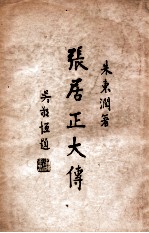 朱東潤著
張居正大傳
吳敬恒題